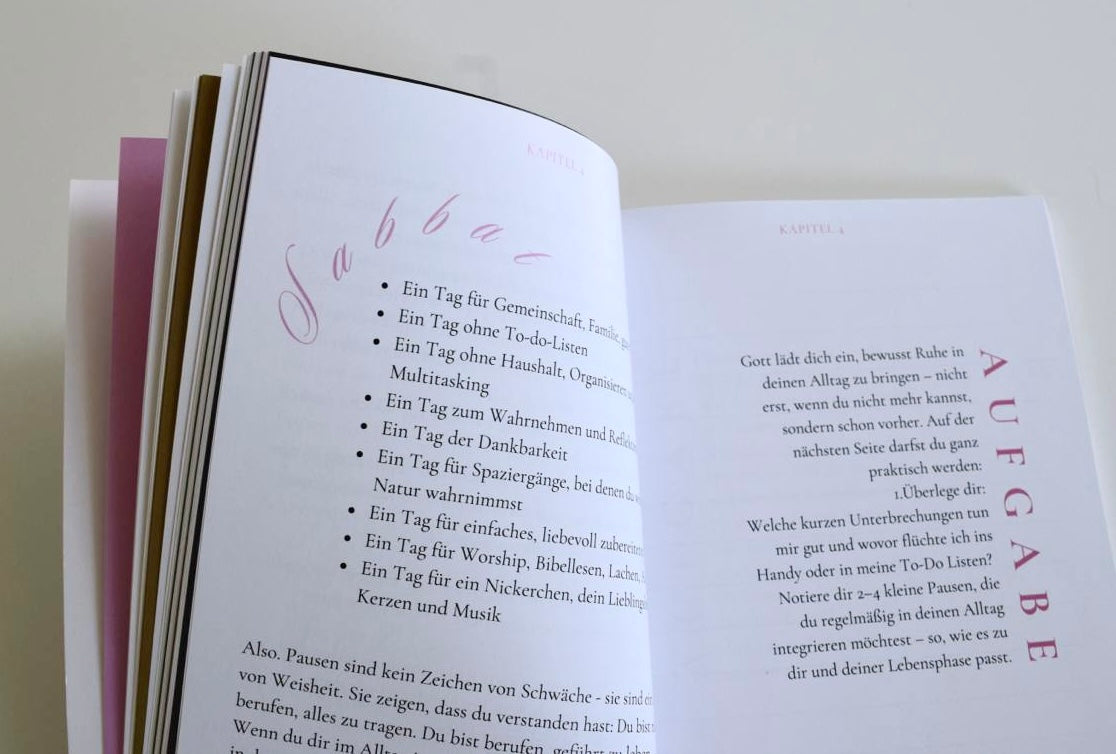 KAPITEL 4
Sabbat
• Ein Tag für Gemeinschaft, Familie,
• Ein Tag ohne To-do-Listen
• Ein Tag ohne Haushalt, Organisieren
Multitasking
• Ein Tag zum Wahrnehmen und
• Ein Tag der Dankbarkeit
• Ein Tag für Spaziergänge, bei denen du
Natur wahrnimmst
• Ein Tag für einfaches, liebevoll
• Ein Tag für Worship, Bibellesen, Lachen,
• Ein Tag für ein Nickerchen, dein
Kerzen und Musik
Also. Pausen sind kein Zeichen von Schwäche - sie sind
von Weisheit. Sie zeigen, dass du verstanden hast: Du bist
berufen, alles zu tragen. Du bist berufen, geführt zu
Wenn du dir im
KAPITEL 4
AUFGABE
Gott lädt dich ein, bewusst Ruhe in
deinen Alltag zu bringen – nicht
erst, wenn du nicht mehr kannst,
sondern schon vorher. Auf der
nächsten Seite darfst du ganz
praktisch werden:
1.Überlege dir:
Welche kurzen Unterbrechungen tun
mir gut und wovor flüchte ich ins
Handy oder in meine To-Do Listen?
Notiere dir 2–4 kleine Pausen, die
du regelmäßig in deinen Alltag
integrieren möchtest – so, wie es zu
dir und deiner Lebensphase passt.